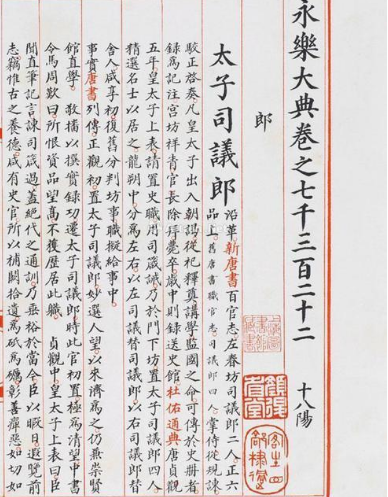 永樂大典卷之七千三百二十二 十八陽
郎
太子司議郎 沿革新唐書百官志左春坊司議郎二人正六
品上舊唐書職官志司議郎四人掌侍從規諫
駮正啓奏凡皇太子出入朝謁從祀釋奠講學監國之命可傳於史冊者
錄為記注宮坊祥青官長除拜薨卒歲中則録送史館杜佑通典唐貞觀
五年皇太子上表請置史職用司箴誡乃於門下坊置太子司議郎四人
精選名士以居之龍朔中分為左右以左司議替司議郎以右司議替
舍人咸亨初復舊分判坊事職擬給事中
事實唐書列傳正觀初置太子司議郎妙選人望以來濟為之仍兼崇賢
館直學敬播以撰實録功遷太子司議郎時此官初置極為清望中書
令馬周歎曰所恨資品望高不獲歷居此職貞觀中皇太子上表曰臣
聞直筆記言諫司箴過蓋絕代之通訓乃垂裕於當今臣以暇日遊覽前
志竊惟古之養德咸有史官所以補闕拾遺為砥為礪彰善癉惡如切如